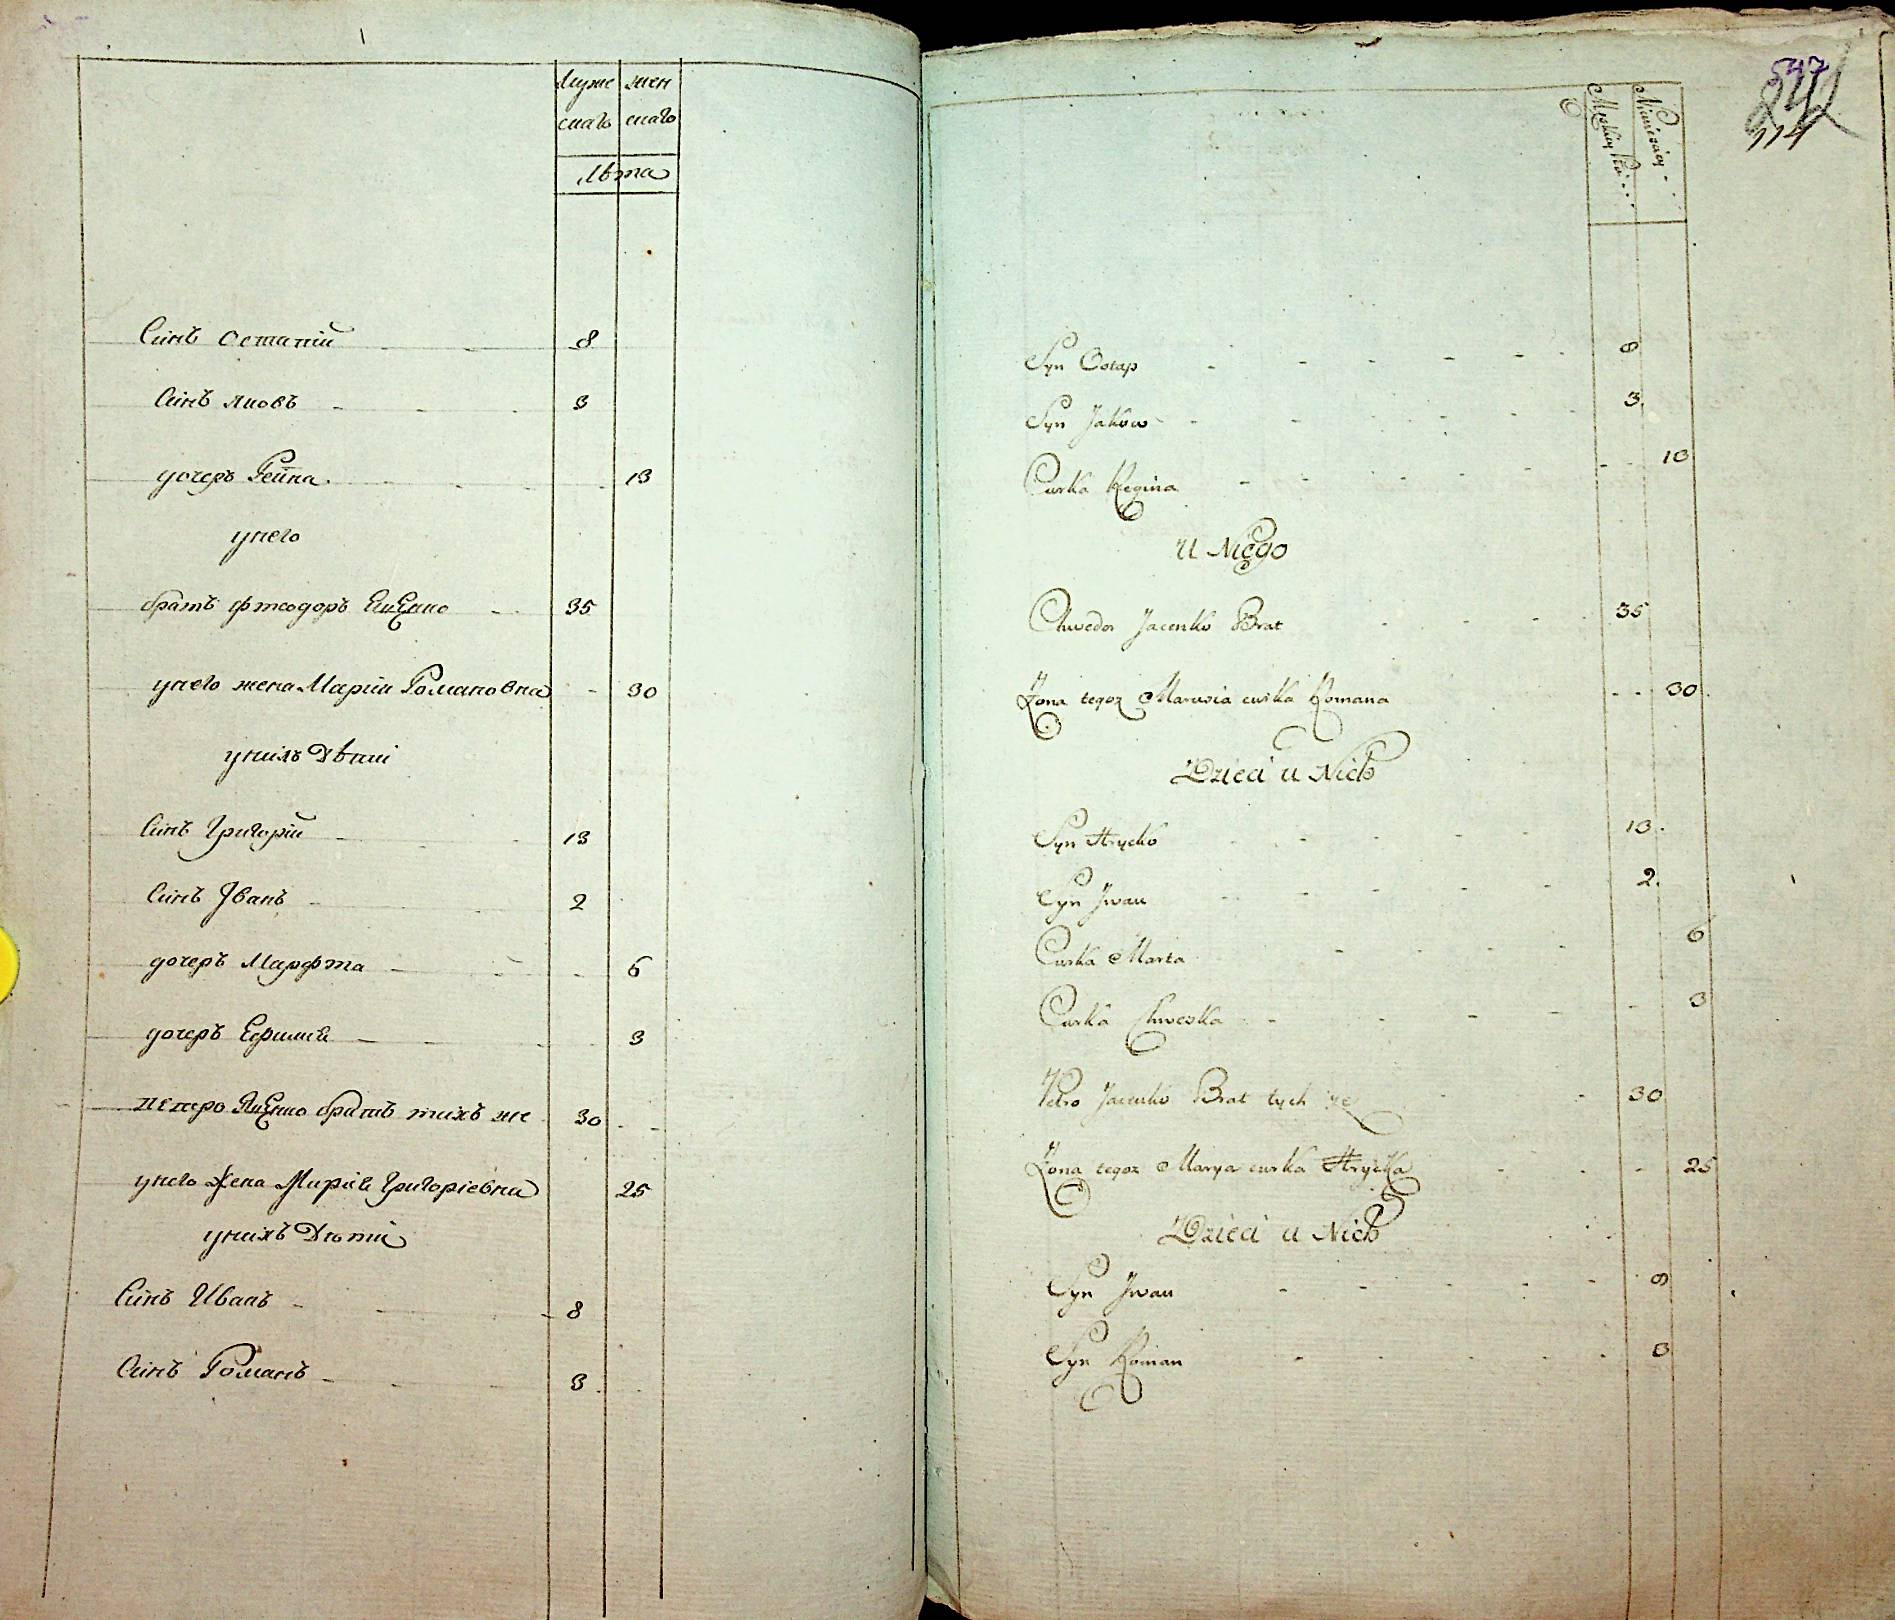 муже жен
скаго скаго
лѣта
Синъ Остапій 8
Синъ яковъ 3
дочеръ Реина 13
унего
братъ Фтеодоръ Яценко 35
унего жена Мария Романовна 30
унихъ Дѣти
Синъ Григорій 13
Синъ Іванъ 2
дочеръ Марфта 6
дочеръ Ефимия 3
петро Яценко братъ тихъ же 30
унего Жена Мария Григоріевна 25
унихъ Дѣти
Синъ Иванъ 8
Синъ Романъ 3
547
242
114
Męskiey Płci
Niewieściey
Syn Ostap 8
Syn Jakow 3
Curka Regina 13
U Niego
Chwedor Jacenko Brat 35
Żona tegoz Marusia curka Romana 30
Dzieci u Nich
Syn Hrycko 13
Syn Jwan 2
Curka Marta 6
Curka Chweska 3
Petro Jacenko Brat tych że 30
Żona tegoz Marya curka Hrycka 25
Dzieci u Nich
Syn Jwan 8
Syn Roman 3